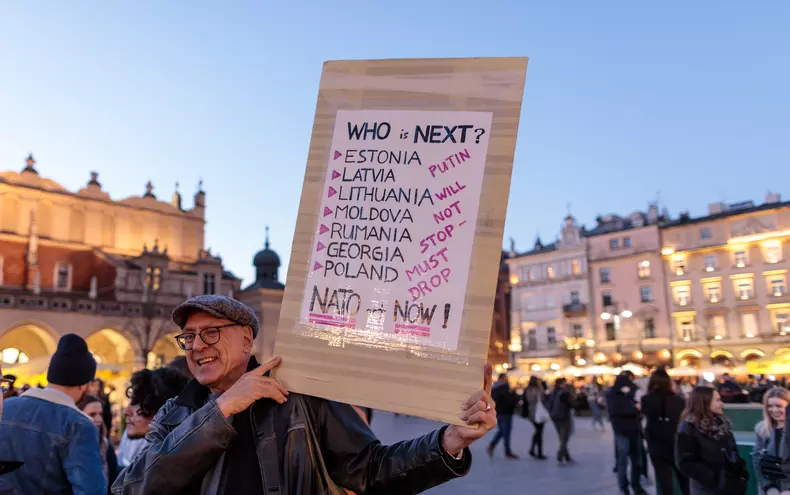 WHO is NEXT?
ESTONIA
LATVIA
LITHUANIA
MOLDOVA
RUMANIA
GEORGIA
POLAND
PUTIN
WILL
NOT
STOP..
MUST
DROP
NATO act NOW!